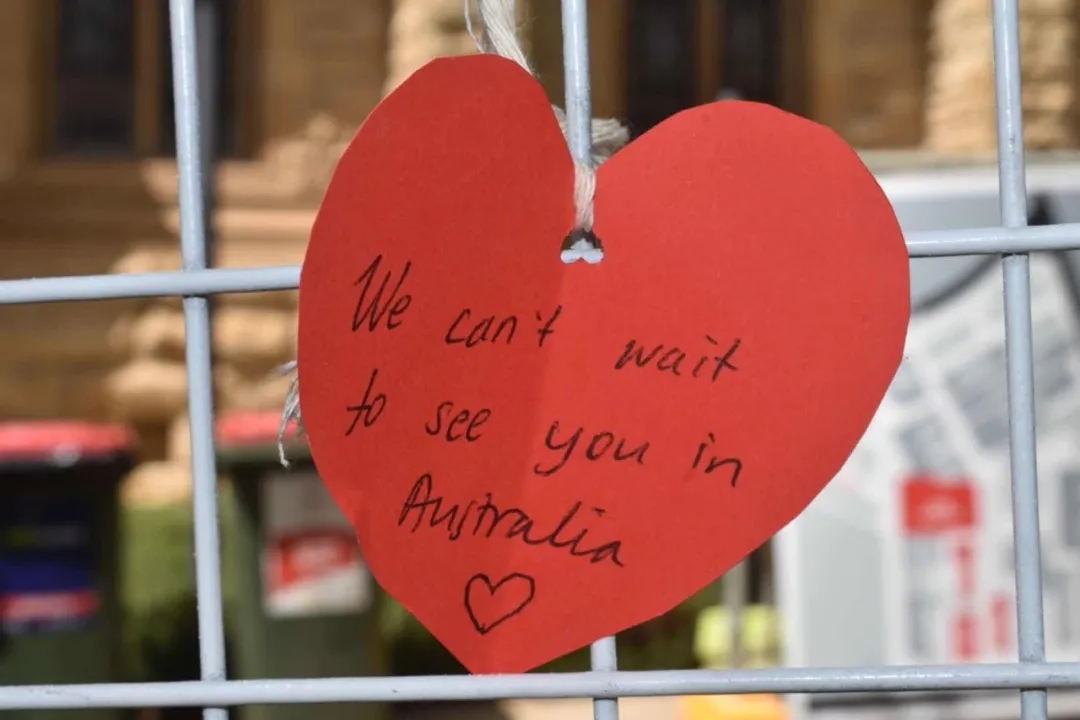 We can't wait
to see you in
Australia